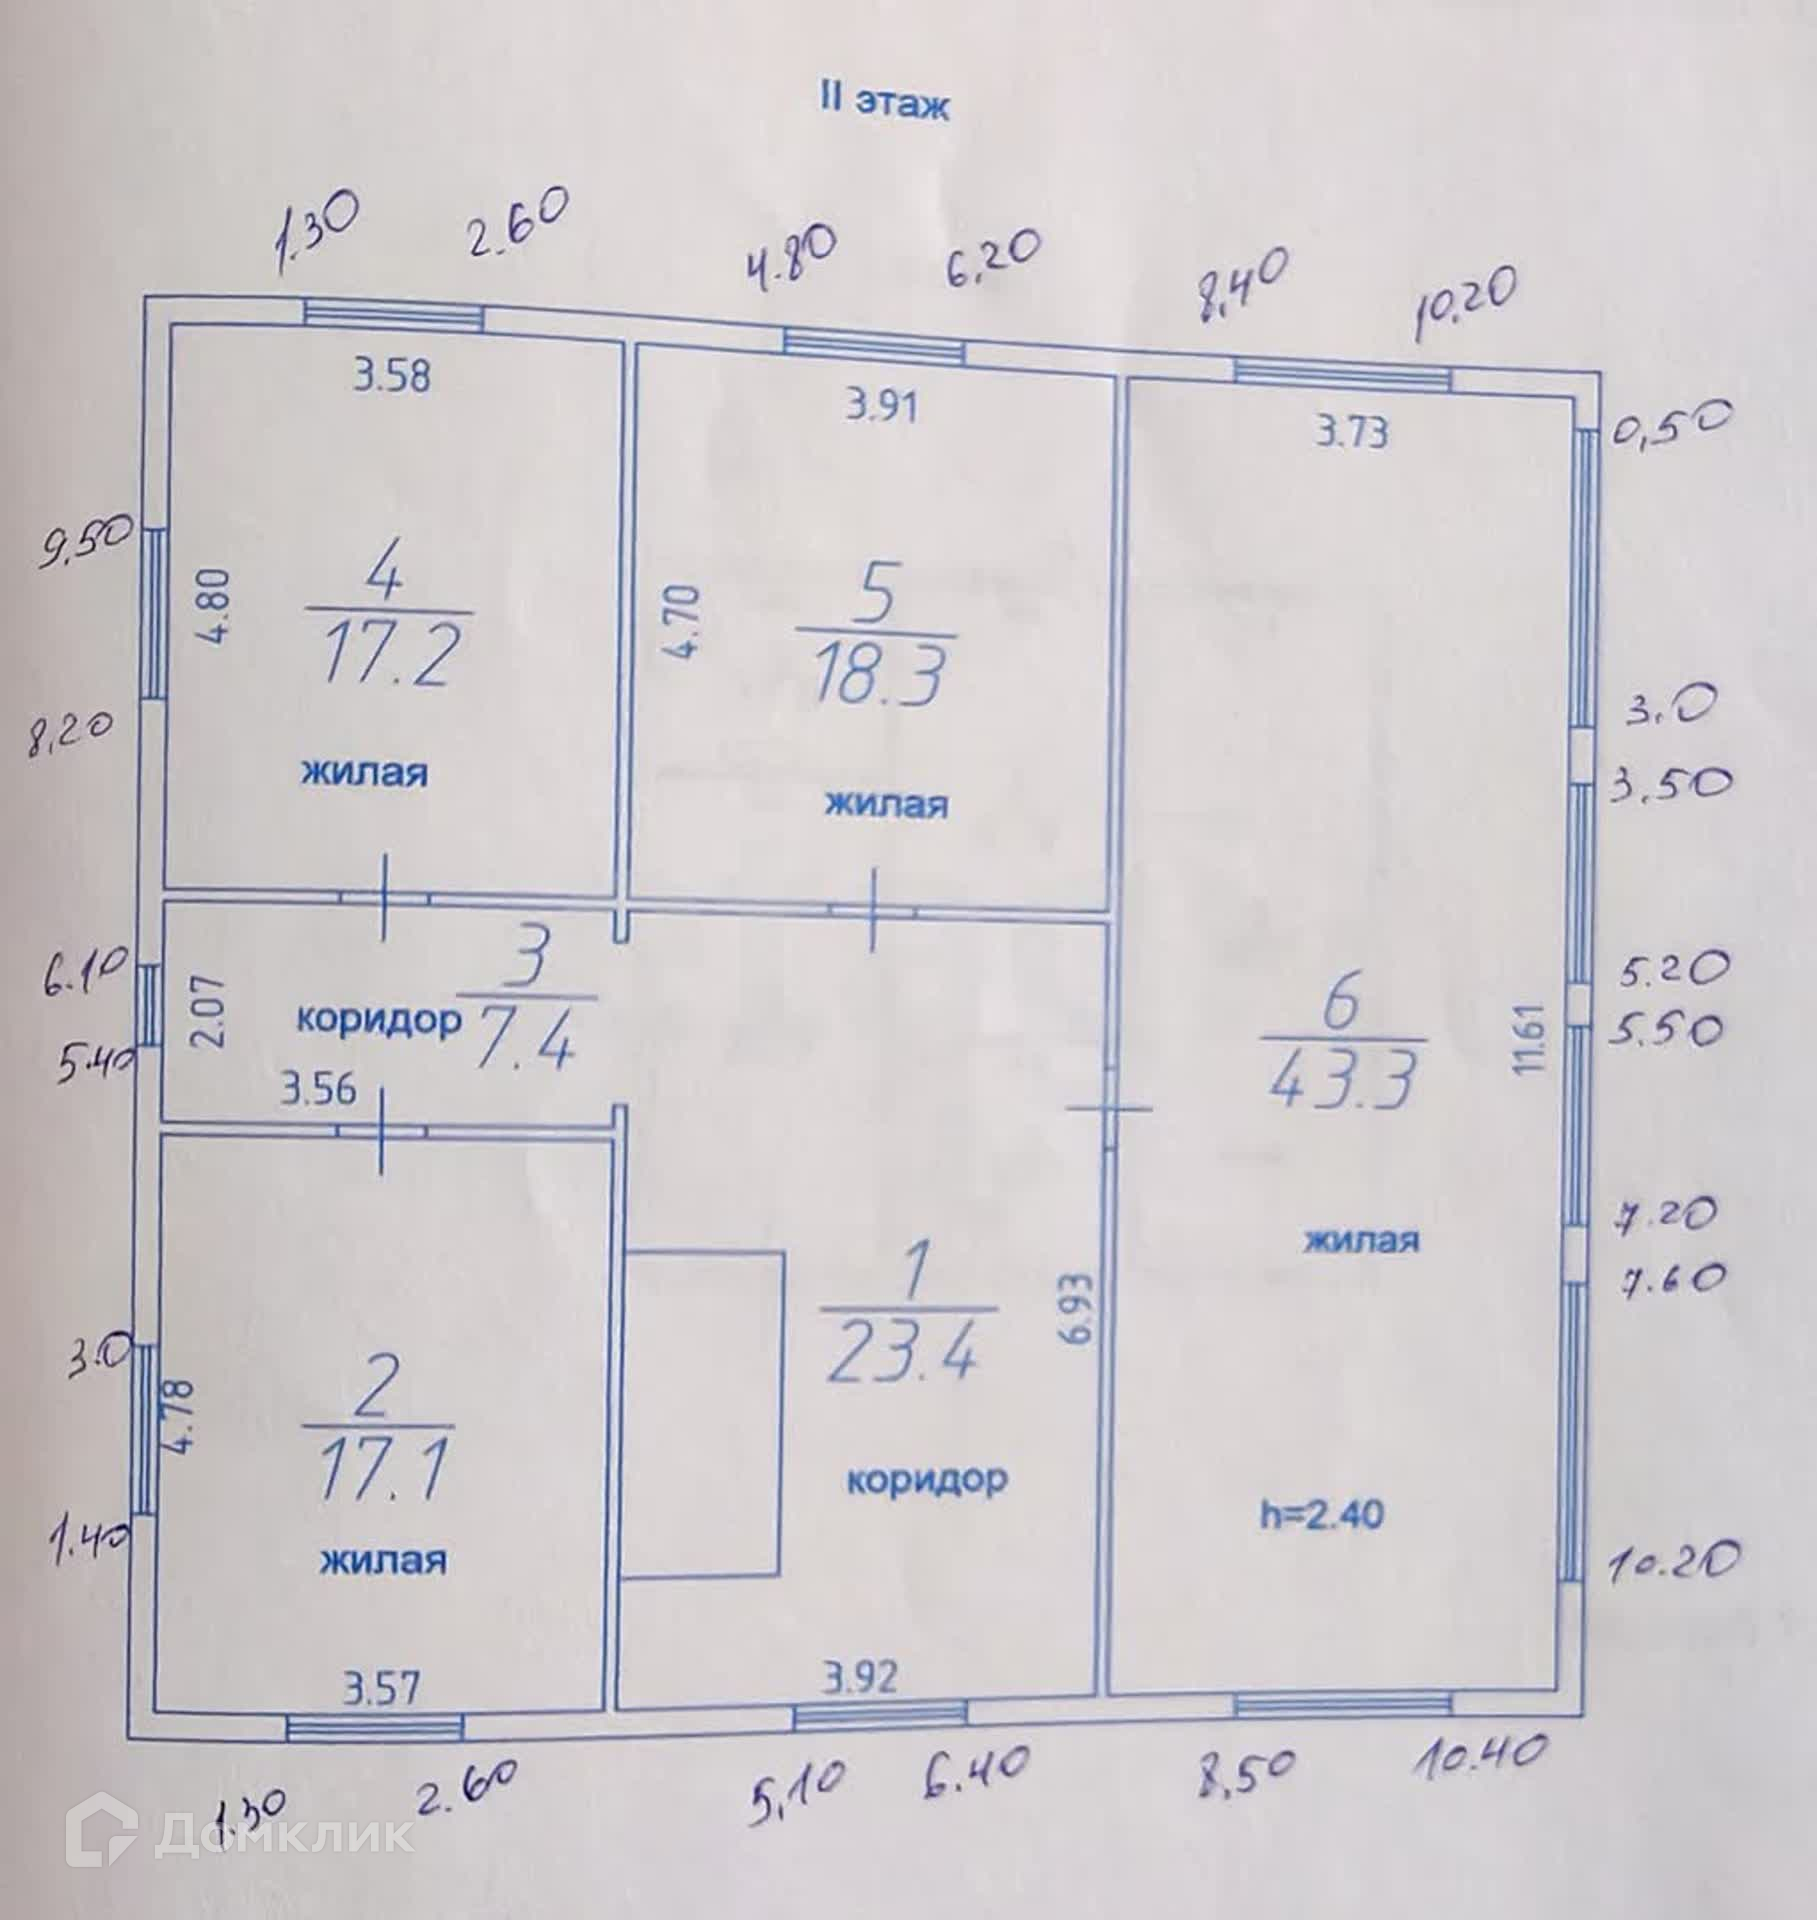 II этаж
1.30 2.60 4.80 6,20 8,40 10.20
3.58 3.91 3.73
0,50
9,50
4.80
4
17.2
жилая
4.70
5
18.3
жилая
8,20
3.0
3,50
6.10
5.40
2.07
3
7.4
коридор
3.56
6
43.3
11.61
жилая
h=2.40
5.20
5.50
7.20
7.60
10.20
1
23.4
6.93
коридор
3.92
3.0
1.40
4.78
2
17.1
жилая
3.57
1.30 2.60 5,10 6.40 8,50 10.40
Домклик